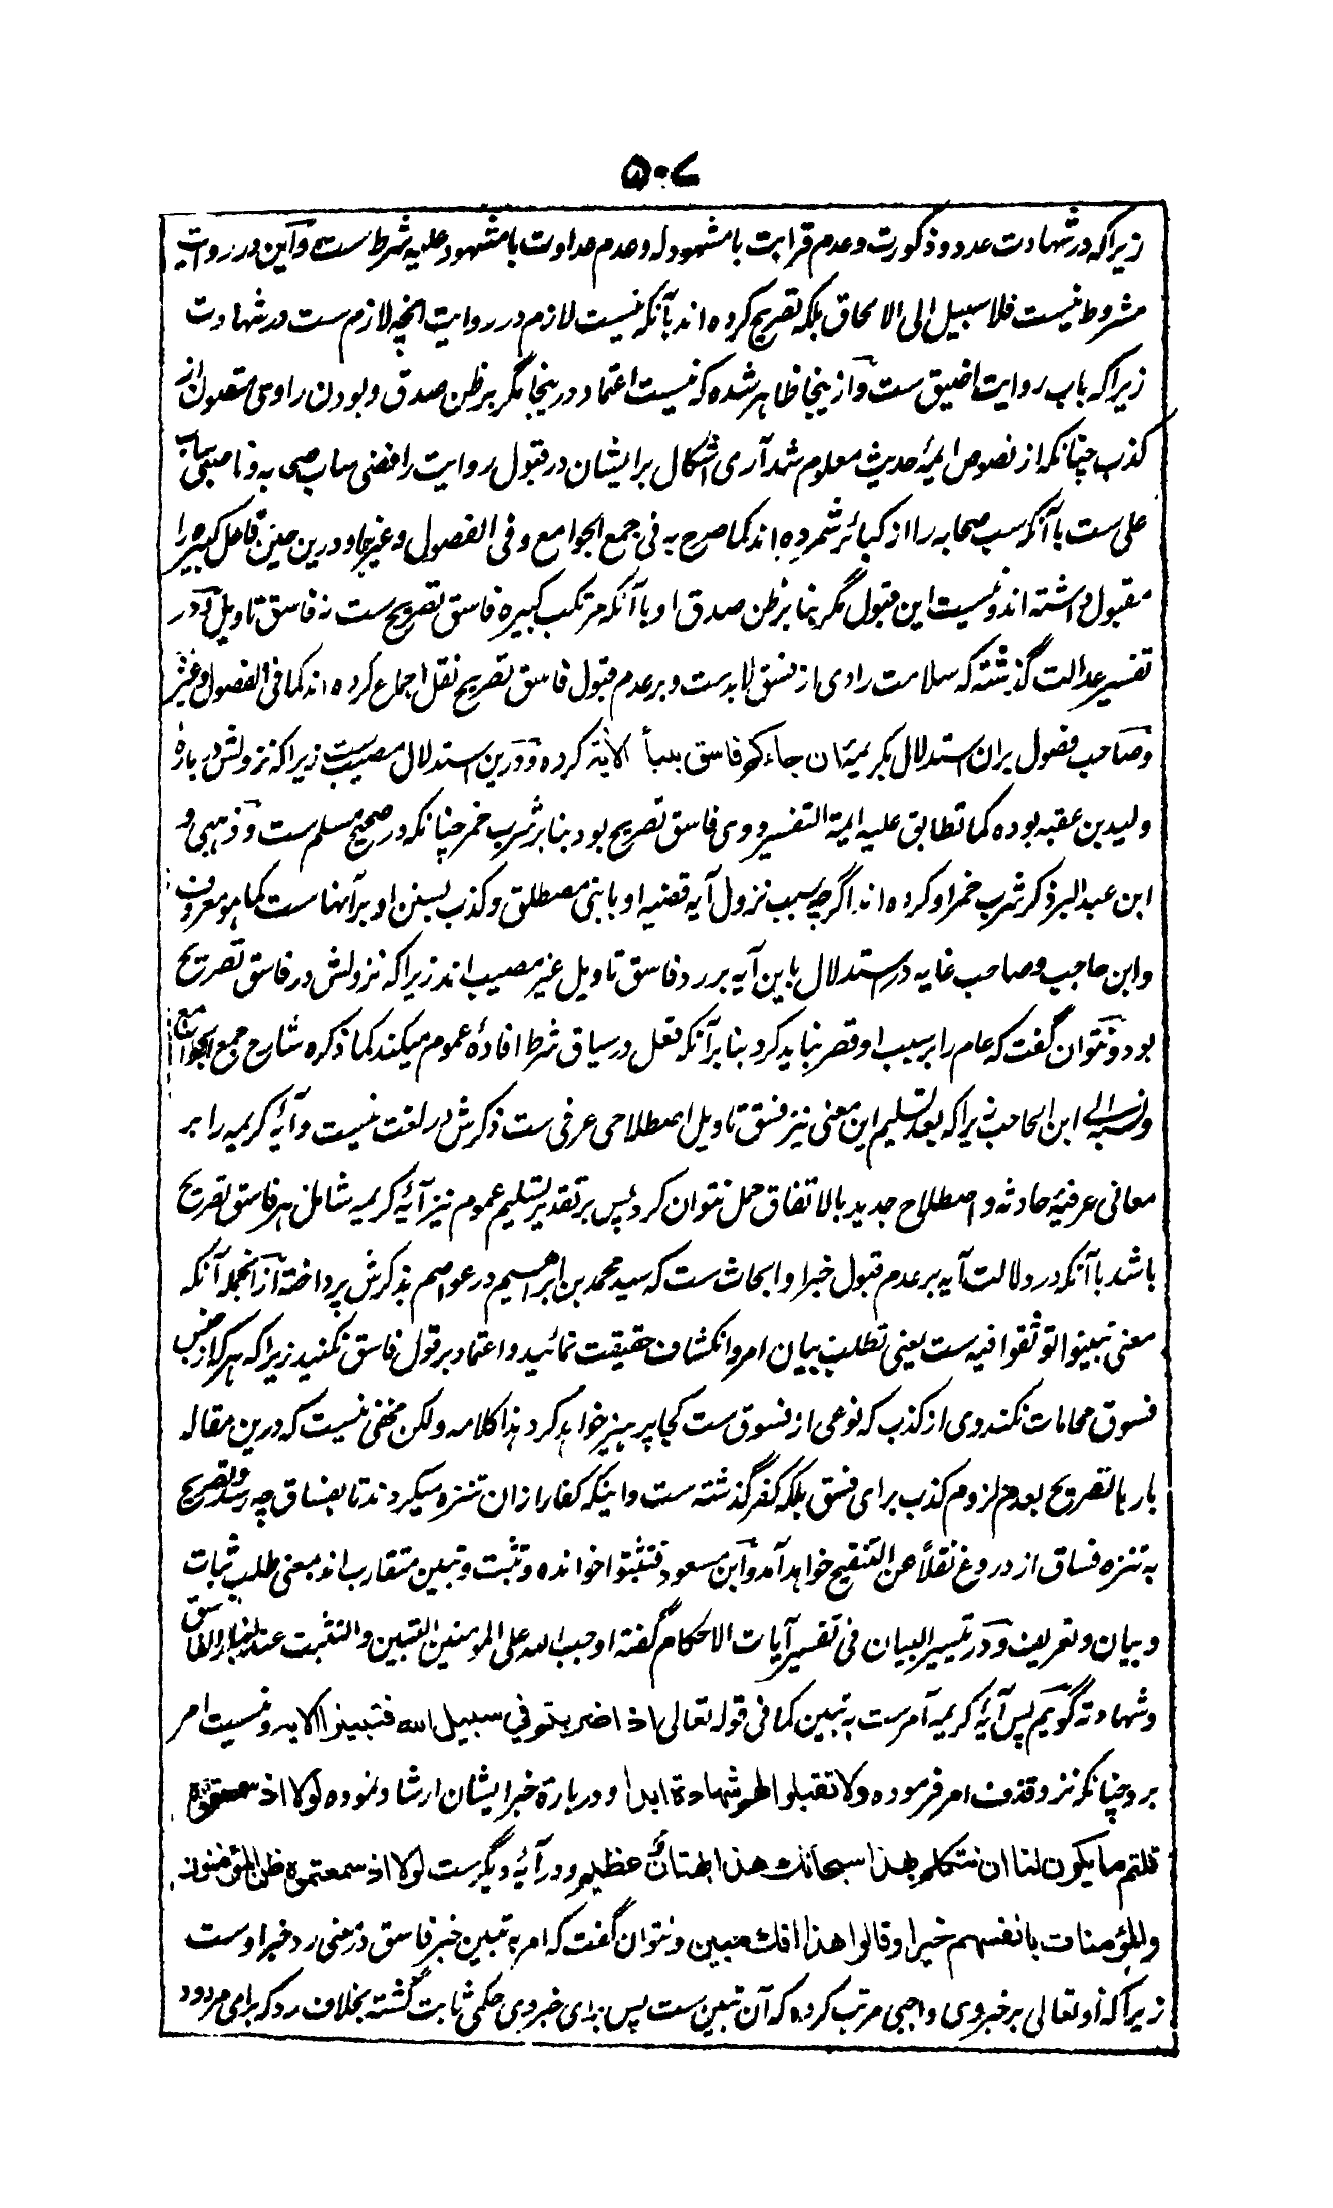 ۵۰۷
زیراکه در شهادت عدد و ذکورت و عدم قرابت با مشهود له و عدم عداوت با مشهود علیه شرط ست و این در روایت
مشروط نیست فلا سبیل الی الالحاق بلکه تصریح کرده اند بآنکه نیست لازم در روایت انچه لازم ست در شهادت
زیراکه باب روایت اضیق ست و ازینجا ظاهر شده که نیست اعتماد درینجا مگر بر ظن صدق و بودن راوی مقبول از
کذب چنانکه از نصوص ایمهٔ حدیث معلوم شد آری اشکال بر ایشان در قبول روایت رافضی ساب صحابه و ناصبی ساب
علی ست با آنکه سب صحابه را از کبائر شمرده اند کما صرح به فی جمع الجوامع و فی الفصول و غیرها و درین حین فاعل کبیره را
مقبول داشته اند و نیست این قبول مگر بنا بر ظن صدق او با آنکه مرتکب کبیره فاسق تصریح ست نه فاسق تاویل و در
تفسیر عدالت گذشته که سلامت راوی از فسق لابدست و بر عدم قبول فاسق تصریح نقل اجماع کرده اند کما فی الفصول و غیره
و صاحب فصول بران استدلال بکریمهٔ ان جاءکم فاسق بنبأ الایة کرده و درین استدلال مصیبست زیراکه نزولش دربارهٔ
ولید بن عقبه بوده کما تطابق علیه ایمة التفسیر و وی فاسق تصریح بود بنا بر شرب خمر چنانکه در صحیح مسلم ست و ذهبی و
ابن عبد البر ذکر شرب خمر او کرده اند اگرچه سبب نزول آیه قضیه او با بنی مصطلق و کذب بستن او بر آنهاست کما هو معروف
و ابن حاجب و صاحب غایه در استدلال باین آیه بر رد فاسق تاویل غیر مصیب اند زیراکه نزولش در فاسق تصریح
بود و نتوان گفت که عام را بر سبب او قصر نباید کرد بنا بر آنکه فعل در سیاق شرط افادهٔ عموم میکند کما ذکره شارح جمع الجوامع
و نسبه الی ابن الحاجب زیراکه بعد تسلیم این معنی نیز فسق تاویل اصطلاحی عرفی ست ذکرش در لغت نیست و آیهٔ کریمه را بر
معانی عرفیهٔ حادثه و اصطلاح جدید بالاتفاق حمل نتوان کرد پس بر تقدیر تسلیم عموم نیز آیهٔ کریمه شامل هر فاسق تصریح
باشد با آنکه در دلالت آیه بر عدم قبول خبر او ابحاث ست که سید محمد بن ابراهیم در عواصم بذکرش پرداخته از انجمله آنکه
معنی تبینوا توثقوا فیه ست یعنی تطلب بیان امر و انکشاف حقیقت نمائید و اعتماد بر قول فاسق نکنید زیراکه هر که از جنس
فسوق محامات نکند وی از کذب که نوعی از فسوق ست کجا پرهیز خواهد کرد هذا کلامه ولکن مخفی نیست که درین مقاله
بارها تصریح بعدم لزوم کذب برای فسق بلکه کفر گذشته ست و اینکه کفار ازان تنزه میکردند تا بفساق چه رسد و تصریح
به تنزه فساق از دروغ نقلاً عن التنقیح خواهد آمد و ابن مسعود فتثبتوا خوانده و تثبت و تبین متقارب اند بمعنی طلب ثبات
و بیان و تعریف و در تیسیر البیان فی تفسیر آیات الاحکام گفته اوجب الله علی المؤمنین التبین و التثبت عند اخبار الفاسق
و شهادته گویم پس آیهٔ کریمه آمرست به تبین کما فی قوله تعالی اذا ضربتم فی سبیل الله فتبینوا الایه و نیست امر
برد چنانکه نزد قذف امر فرموده ولا تقبلوا لهم شهادة ابدا و دربارهٔ خبر ایشان ارشاد نموده لولا اذ سمعتموه
قلتم ما یکون لنا ان نتکلم بهذا سبحانك هذا بهتان عظیم و در آیهٔ دیگرست لولا اذ سمعتموه ظن المؤمنون
والمؤمنات بانفسهم خیرا وقالوا هذا افك مبین و نتوان گفت که امر به تبین خبر فاسق در معنی رد خبر اوست
زیراکه او تعالی بر خبر وی واجبی مرتب کرده که آن تبین ست پس برای خبر وی حکمی ثابت گشته بخلاف رد که برای مردود